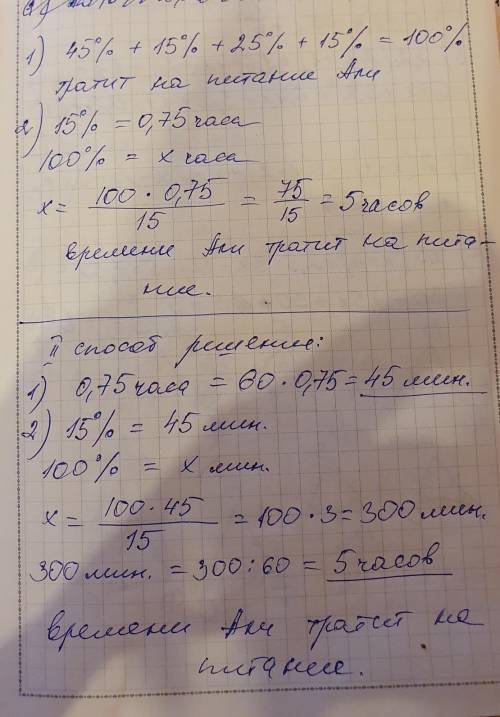 1) 45% + 15% + 25% + 15% = 100%
тратит на питание Али
2) 15% = 0,75 часа
100% = х часа
х = 100 · 0,75 / 15 = 75 / 15 = 5 часов
времени Али тратит на пита-
ние.
II способ решение:
1) 0,75 часа = 60 · 0,75 = 45 мин.
2) 15% = 45 мин.
100% = х мин.
х = 100 · 45 / 15 = 100 · 3 = 300 мин.
300 мин. = 300 : 60 = 5 часов
времени Али тратит на
питание.